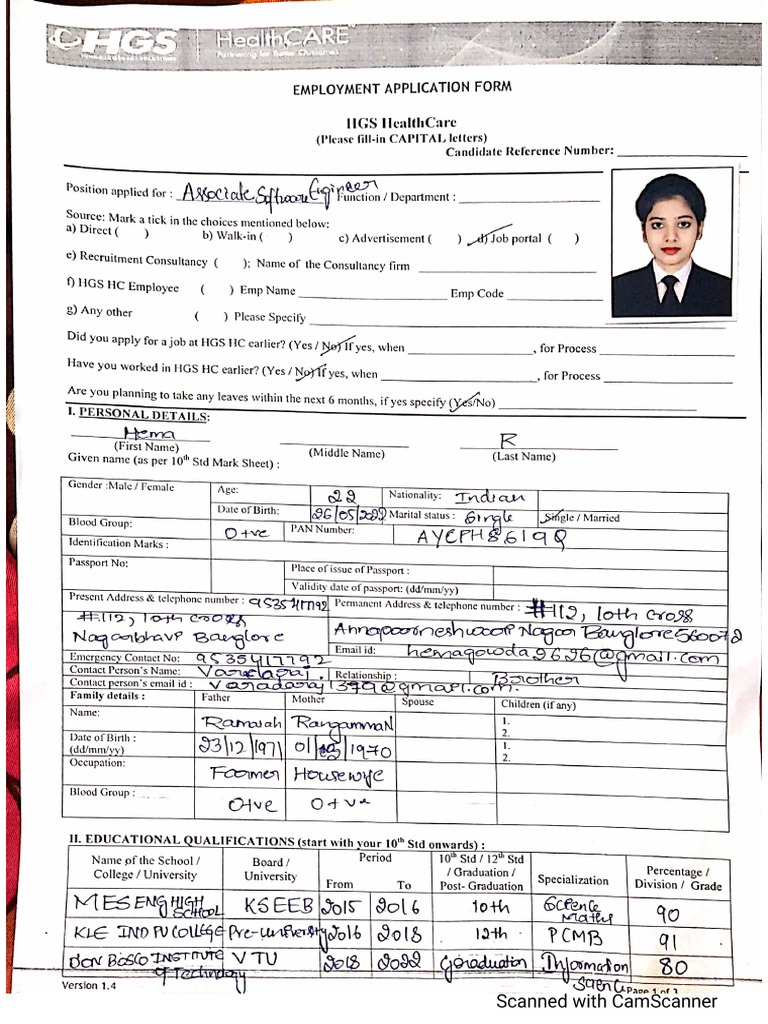 HGS HealthCARE
Partnering for Better Outcomes
EMPLOYMENT APPLICATION FORM
HGS HealthCare
(Please fill-in CAPITAL letters)
Candidate Reference Number:
Position applied for : Associate Software Engineer Function / Department :
Source: Mark a tick in the choices mentioned below:
a) Direct ( ) b) Walk-in ( ) c) Advertisement ( ) d) Job portal ( )
e) Recruitment Consultancy ( ); Name of the Consultancy firm
f) HGS HC Employee ( ) Emp Name Emp Code
g) Any other ( ) Please Specify
Did you apply for a job at HGS HC earlier? (Yes / No) If yes, when , for Process
Have you worked in HGS HC earlier? (Yes / No) If yes, when , for Process
Are you planning to take any leaves within the next 6 months, if yes specify (Yes/No)
I. PERSONAL DETAILS:
Hema R
(First Name) (Middle Name) (Last Name)
Given name (as per 10th Std Mark Sheet) :
Gender :Male / Female Age: 22 Nationality: Indian
Date of Birth: 26/05/2022 Marital status : Single Single / Married
Blood Group: O+ve PAN Number: AYCPH8619Q
Identification Marks :
Passport No: Place of issue of Passport :
Validity date of passport: (dd/mm/yy)
Present Address & telephone number : 9535417792 Permanent Address & telephone number : #112, 10th cross
#112, 10th cross
Nagarbhavi Banglore Annapoorneshwari Nagar Banglore 560072
Email id: hemagowda2626@gmail.com
Emergency Contact No: 9535417792
Contact Person's Name: Varadaraj Relationship : Brother
Contact person's email id : varadaraj1379@gmail.com.
Family details : Father Mother Spouse Children (if any)
Name: Ramaiah Rangamma 1.
2.
Date of Birth : (dd/mm/yy) 23/12/1971 01/ /1970 1.
2.
Occupation: Farmer Housewife
Blood Group : O+ve O+ve
II. EDUCATIONAL QUALIFICATIONS (start with your 10th Std onwards) :
Name of the School / College / University Board / University Period From To 10th Std / 12th Std / Graduation / Post- Graduation Specialization Percentage / Division / Grade
MES ENG HIGH SCHOOL KSEEB 2015 2016 10th Science Maths 90
KLE IND PU COLLEGE Pre-university 2016 2018 12th PCMB 91
DON BOSCO INSTITUTE of Technology VTU 2018 2022 Graduation Information Science 80
Version 1.4 Page 1 of 3
Scanned with CamScanner